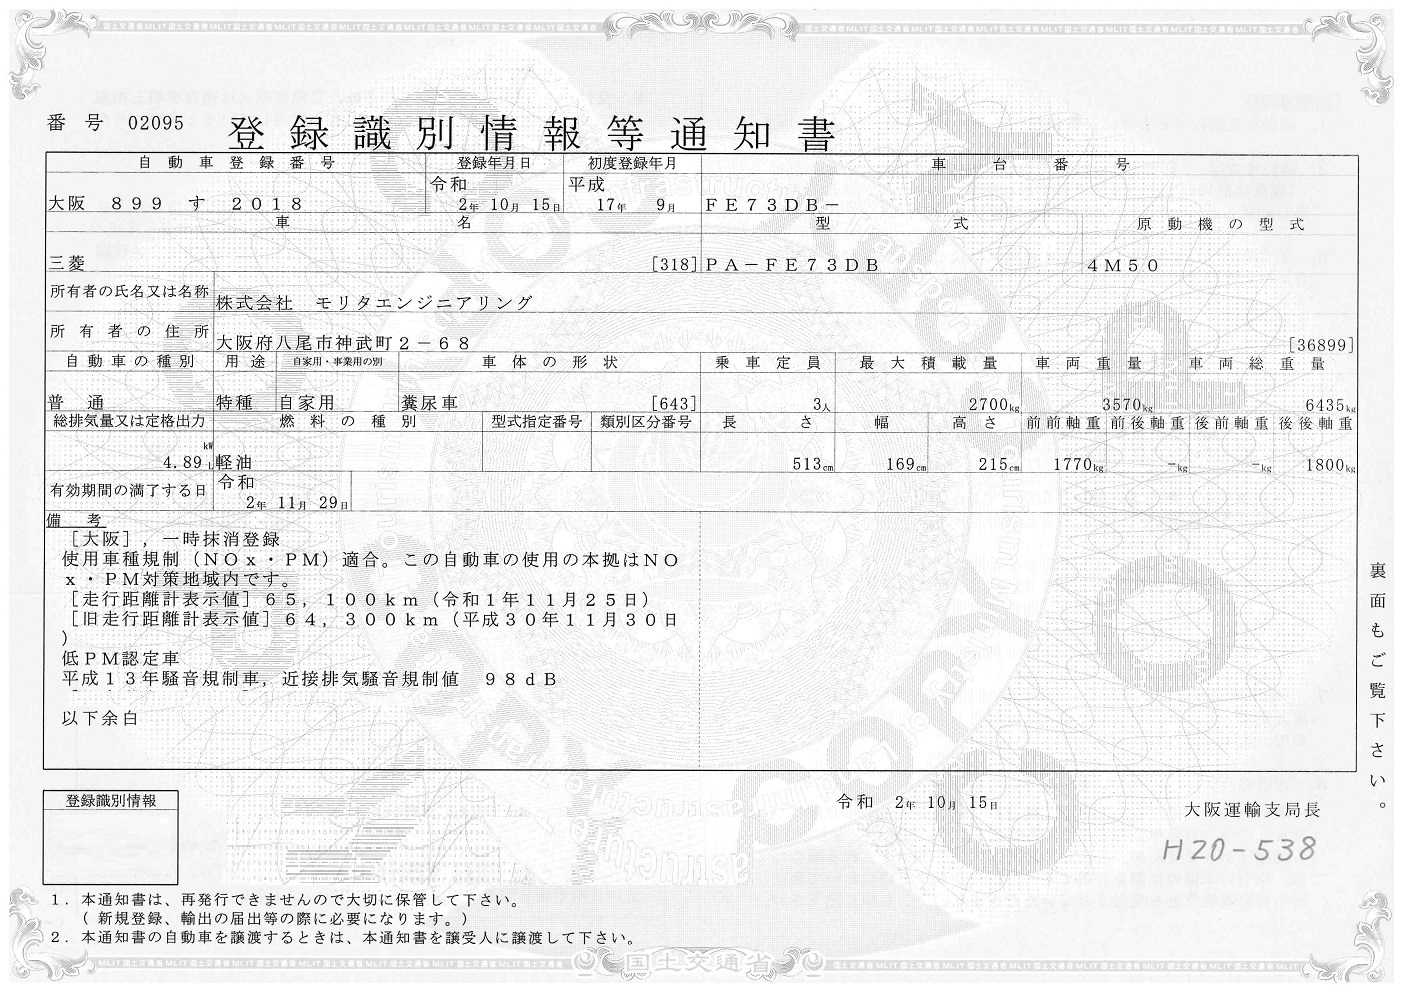 番 号 02095 登録識別情報等通知書
自動車登録番号 登録年月日 初度登録年月 車台番号
令和 平成
大阪 899 す 2018 2年 10月 15日 17年 9月 FE73DB-
車名 型式 原動機の型式
三菱 [318] PA-FE73DB 4M50
所有者の氏名又は名称 株式会社 モリタエンジニアリング
所有者の住所 大阪府八尾市神武町2-68 [36899]
自動車の種別 用途 自家用・事業用の別 車体の形状 乗車定員 最大積載量 車両重量 車両総重量
普通 特種 自家用 糞尿車 [643] 3人 2700kg 3570kg 6435kg
総排気量又は定格出力 燃料の種別 型式指定番号 類別区分番号 長さ 幅 高さ 前前軸重 前後軸重 後前軸重 後後軸重
kW
4.89 L 軽油 513cm 169cm 215cm 1770kg -kg -kg 1800kg
有効期間の満了する日 令和
2年 11月 29日
備考
[大阪],一時抹消登録
使用車種規制(NOx・PM)適合。この自動車の使用の本拠はNO
x・PM対策地域内です。
[走行距離計表示値]65,100km(令和1年11月25日)
[旧走行距離計表示値]64,300km(平成30年11月30日
)
低PM認定車
平成13年騒音規制車,近接排気騒音規制値 98dB
以下余白
裏面もご覧下さい。
登録識別情報
令和 2年 10月 15日
大阪運輸支局長
H20-538
1.本通知書は、再発行できませんので大切に保管して下さい。
(新規登録、輸出の届出等の際に必要になります。)
2.本通知書の自動車を譲渡するときは、本通知書を譲受人に譲渡して下さい。
国土交通省